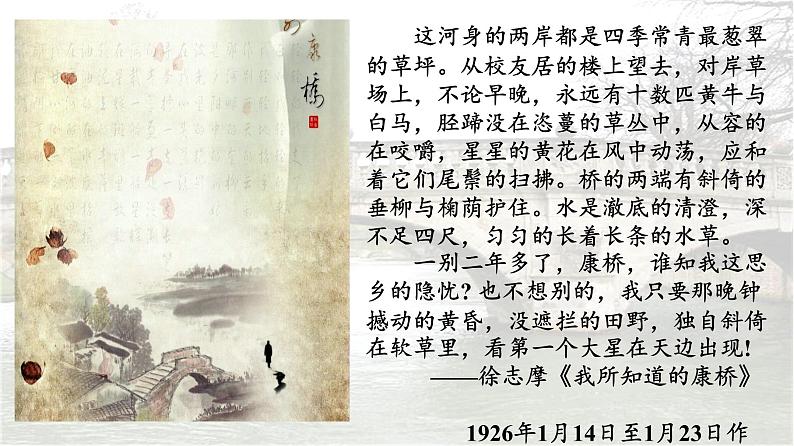 康
橋
这河身的两岸都是四季常青最葱翠
的草坪。从校友居的楼上望去，对岸草
场上，不论早晚，永远有十数匹黄牛与
白马，胫蹄没在恣蔓的草丛中，从容的
在咬嚼，星星的黄花在风中动荡，应和
着它们尾鬃的扫拂。桥的两端有斜倚的
垂柳与椈荫护住。水是澈底的清澄，深
不足四尺，匀匀的长着长条的水草。
一别二年多了，康桥，谁知我这思
乡的隐忧?也不想别的，我只要那晚钟
撼动的黄昏，没遮拦的田野，独自斜倚
在软草里，看第一个大星在天边出现!
——徐志摩《我所知道的康桥》
1926年1月14日至1月23日作